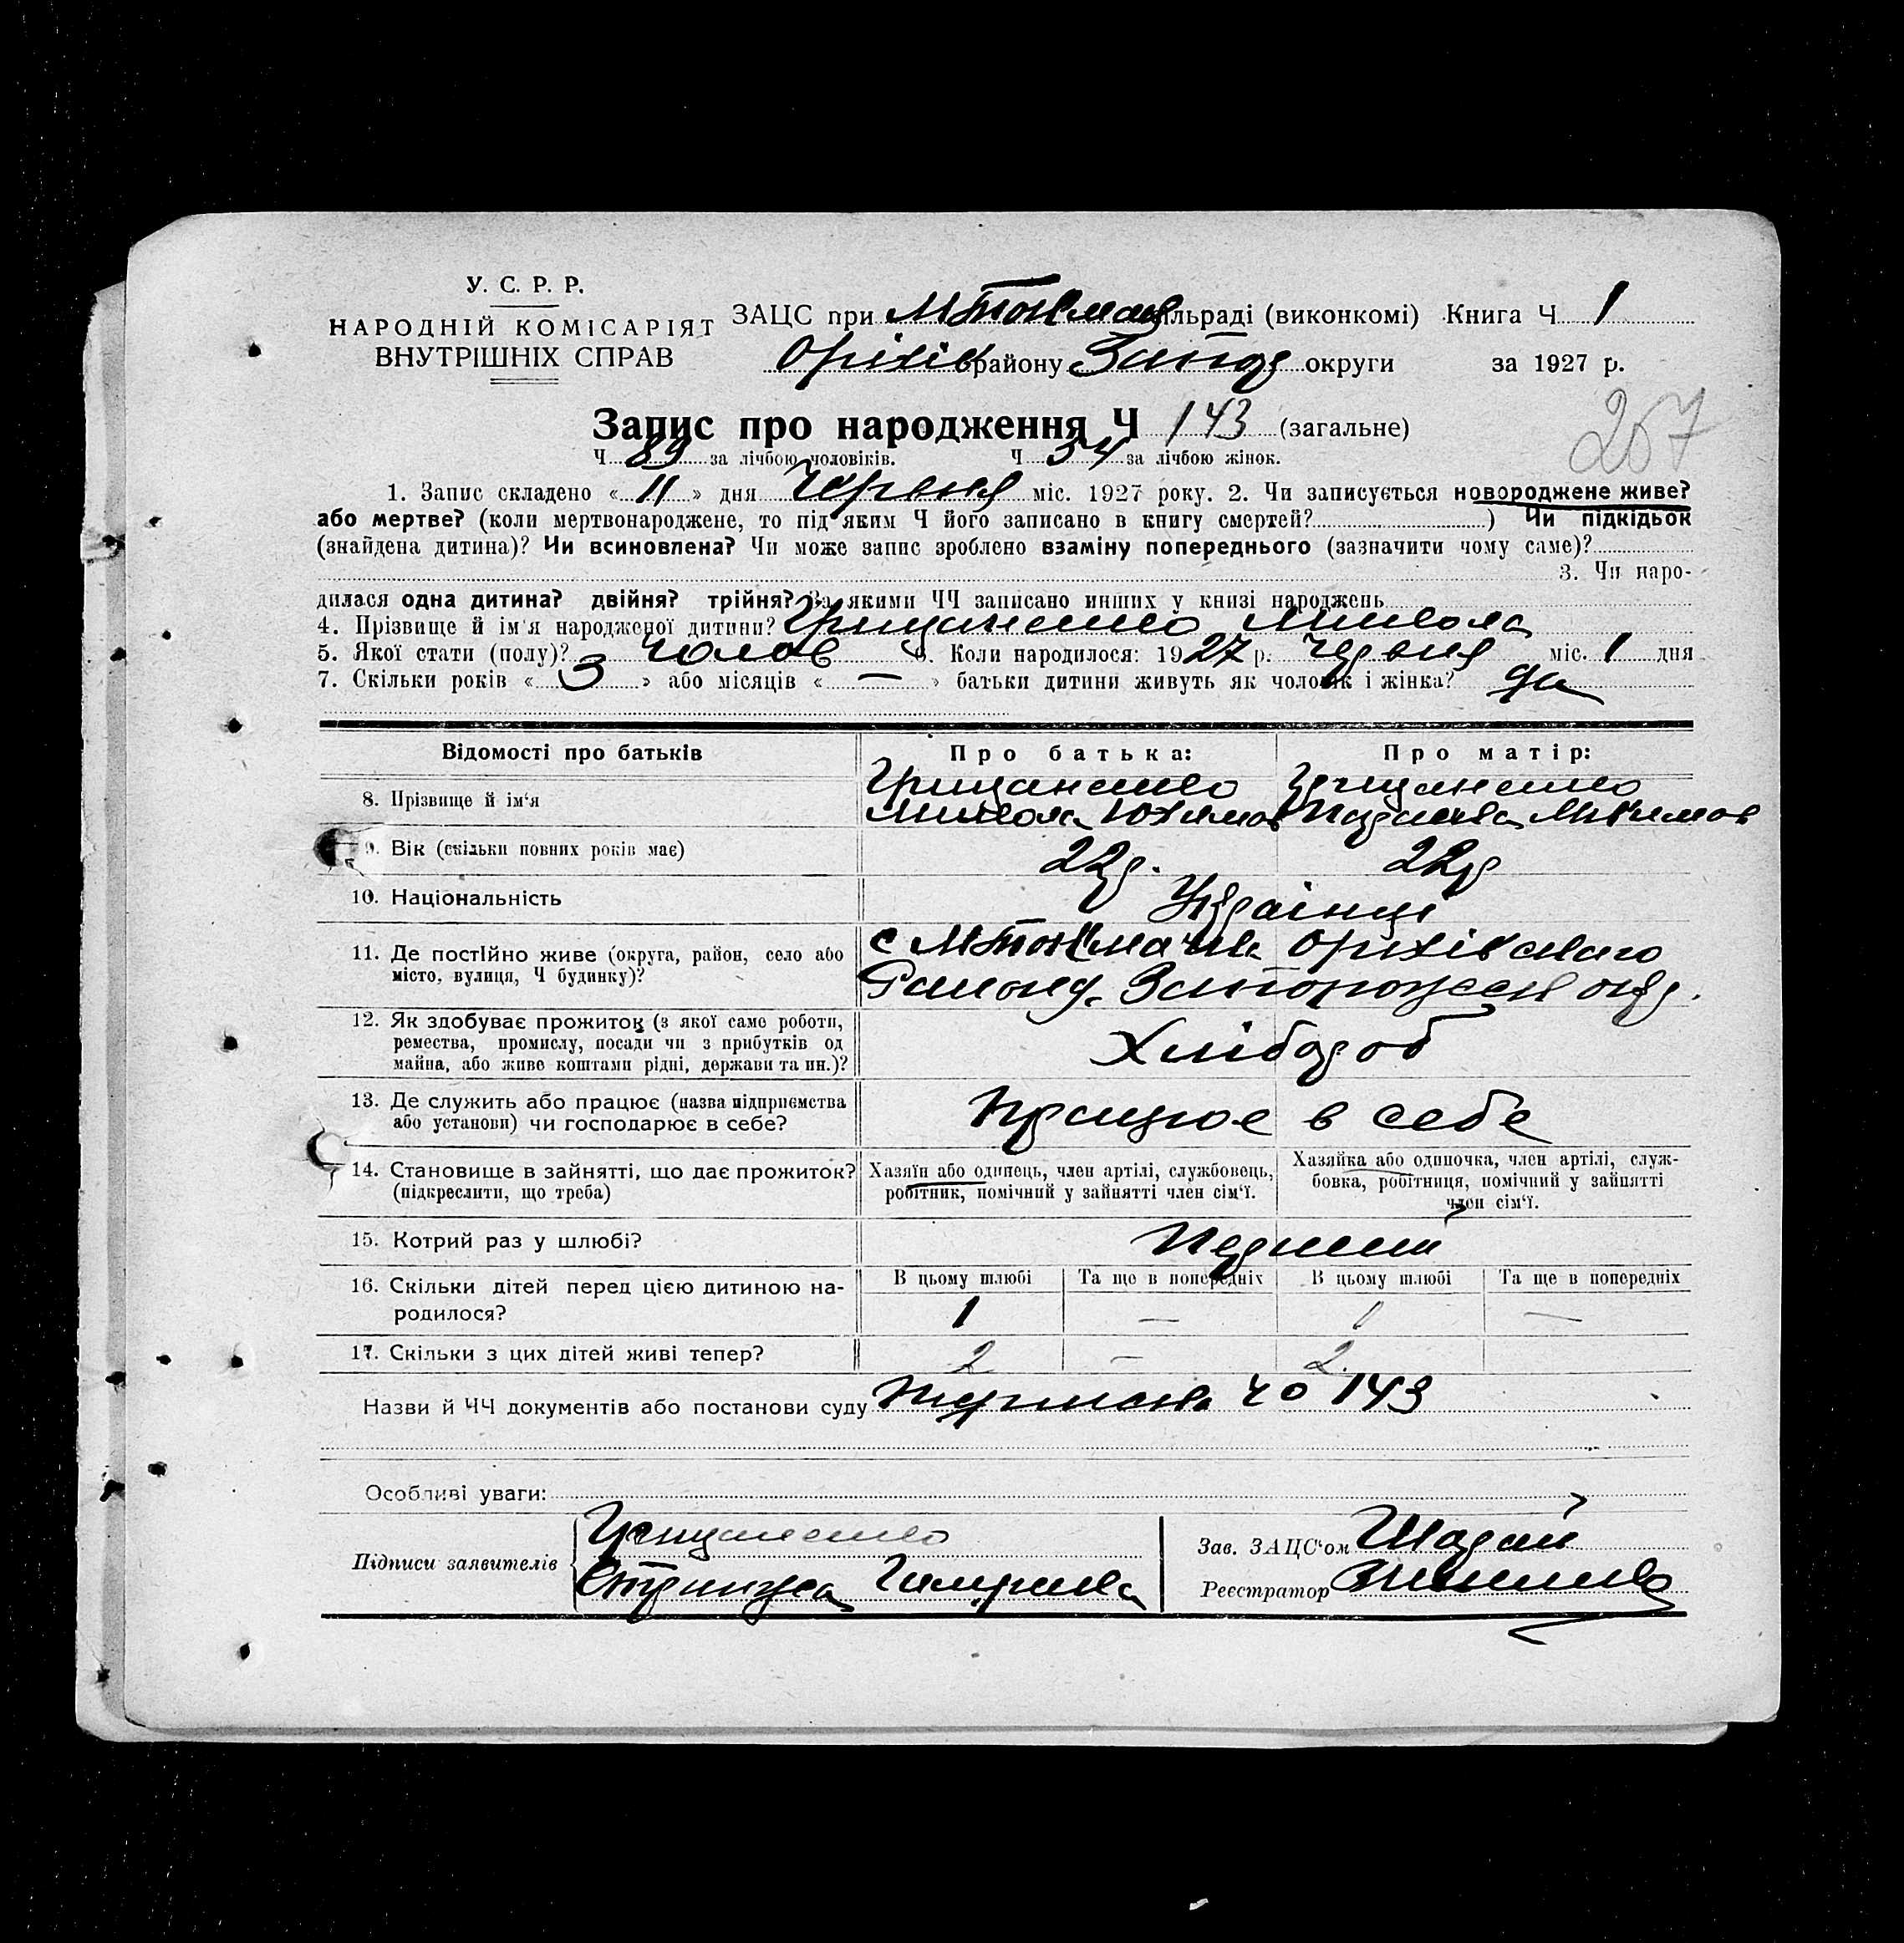 У. С. Р. Р.
НАРОДНІЙ КОМІСАРІЯТ
ВНУТРІШНІХ СПРАВ
ЗАЦС при М Токмац сільраді (виконкомі) Книга Ч 1
Оріхів району Запор округи за 1927 р.
267
Запис про народження Ч 143 (загальне)
Ч 89 за лічбою чоловіків. Ч 54 за лічбою жінок.
1. Запис складено « 11 » дня Червня міс. 1927 року. 2. Чи записується новороджене живе?
або мертве? (коли мертвонароджене, то під яким Ч його записано в книгу смертей? ) Чи підкідьок
(знайдена дитина)? Чи всиновлена? Чи може запис зроблено взаміну попереднього (зазначити чому саме)?
3. Чи наро-
дилася одна дитина? двійня? трійня? За якими ЧЧ записано инших у книзі народжень
4. Прізвище й ім'я народженої дитини? Грицаненко Микола
5. Якої стати (полу)? Чолов 6. Коли народилося: 1927 р. Червня міс. 1 дня
7. Скільки років « 3 » або місяців « — » батьки дитини живуть як чоловік і жінка? да
Відомості про батьків Про батька: Про матір:
8. Прізвище й ім'я Грицаненко Грицаненко
Микола Юхимов Параска
9. Вік (скільки повних років має) 22р. 22р
10. Національність Українці
11. Де постійно живе (округа, район, село або місто, вулиця, Ч будинку)? с М Токмачка Оріхівскаго
Району Запорожськ окр.
12. Як здобуває прожиток (з якої саме роботи,
ремества, промислу, посади чи з прибутків од
майна, або живе коштами рідні, держави та ин.)? Хлібороб
13. Де служить або працює (назва підприємства
або установи) чи господарює в себе? Працює в себе
14. Становище в зайнятті, що дає прожиток?
(підкреслити, що треба)
Хазяїн або одинець, член артілі, службовець,
робітник, помічний у зайнятті член сім'ї.
Хазяйка або одиночка, член артілі, служ-
бовка, робітниця, помічний у зайнятті
член сім'ї.
15. Котрий раз у шлюбі? Перший
16. Скільки дітей перед цією дитиною на-
родилося?
В цьому шлюбі Та ще в попередніх В цьому шлюбі Та ще в попередніх
1 — 1 —
17. Скільки з цих дітей живі тепер? 2 — 2
Назви й ЧЧ документів або постанови суду 143
Особливі уваги:
Підписи заявителів Грицаненко
Зав. ЗАЦС'ом
Реєстратор